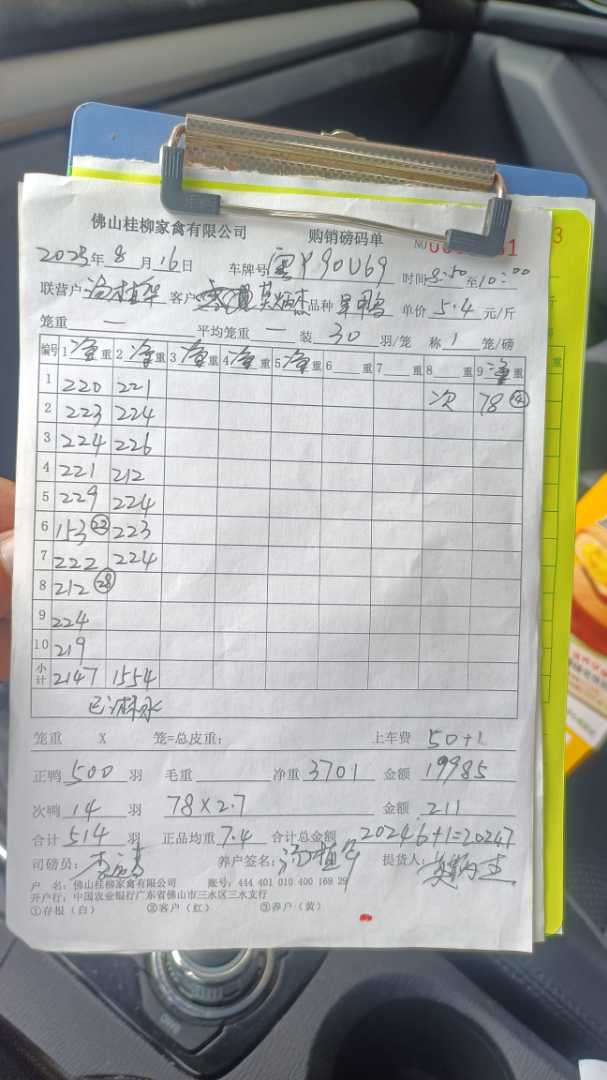 佛山桂柳家禽有限公司 购销磅码单 NO
2025年8月16日 车牌号 粤Y90U69 时间8:50至10:00
联营户 汤植华 客户 品种 单价5.4元/斤
笼重 — 平均笼重 — 装30羽/笼 称1笼/磅
编号 1净重 2净重 3净重 4净重 5净重 6 重 7 重 8 重 9净重
1 220 221 次 78 ⑭
2 223 224
3 224 226
4 221 212
5 229 224
6 153 ㉒ 223
7 222 224
8 212 ㉘
9 224
10 219
小计 2147 1554
已淋水
笼重 X 笼=总皮重: 上车费 50+1
正鸭500羽 毛重 净重3701 金额19985
次鸭14羽 78×2.7 金额211
合计514羽 正品均重7.4 合计总金额20246+1=20247
司磅员: 养户签名:汤植华 提货人:
户 名:佛山桂柳家禽有限公司 账号:444 401 010 400 168 29
开户行:中国农业银行广东省佛山市三水区三水支行
①存根(白) ②客户(红) ③养户(黄)